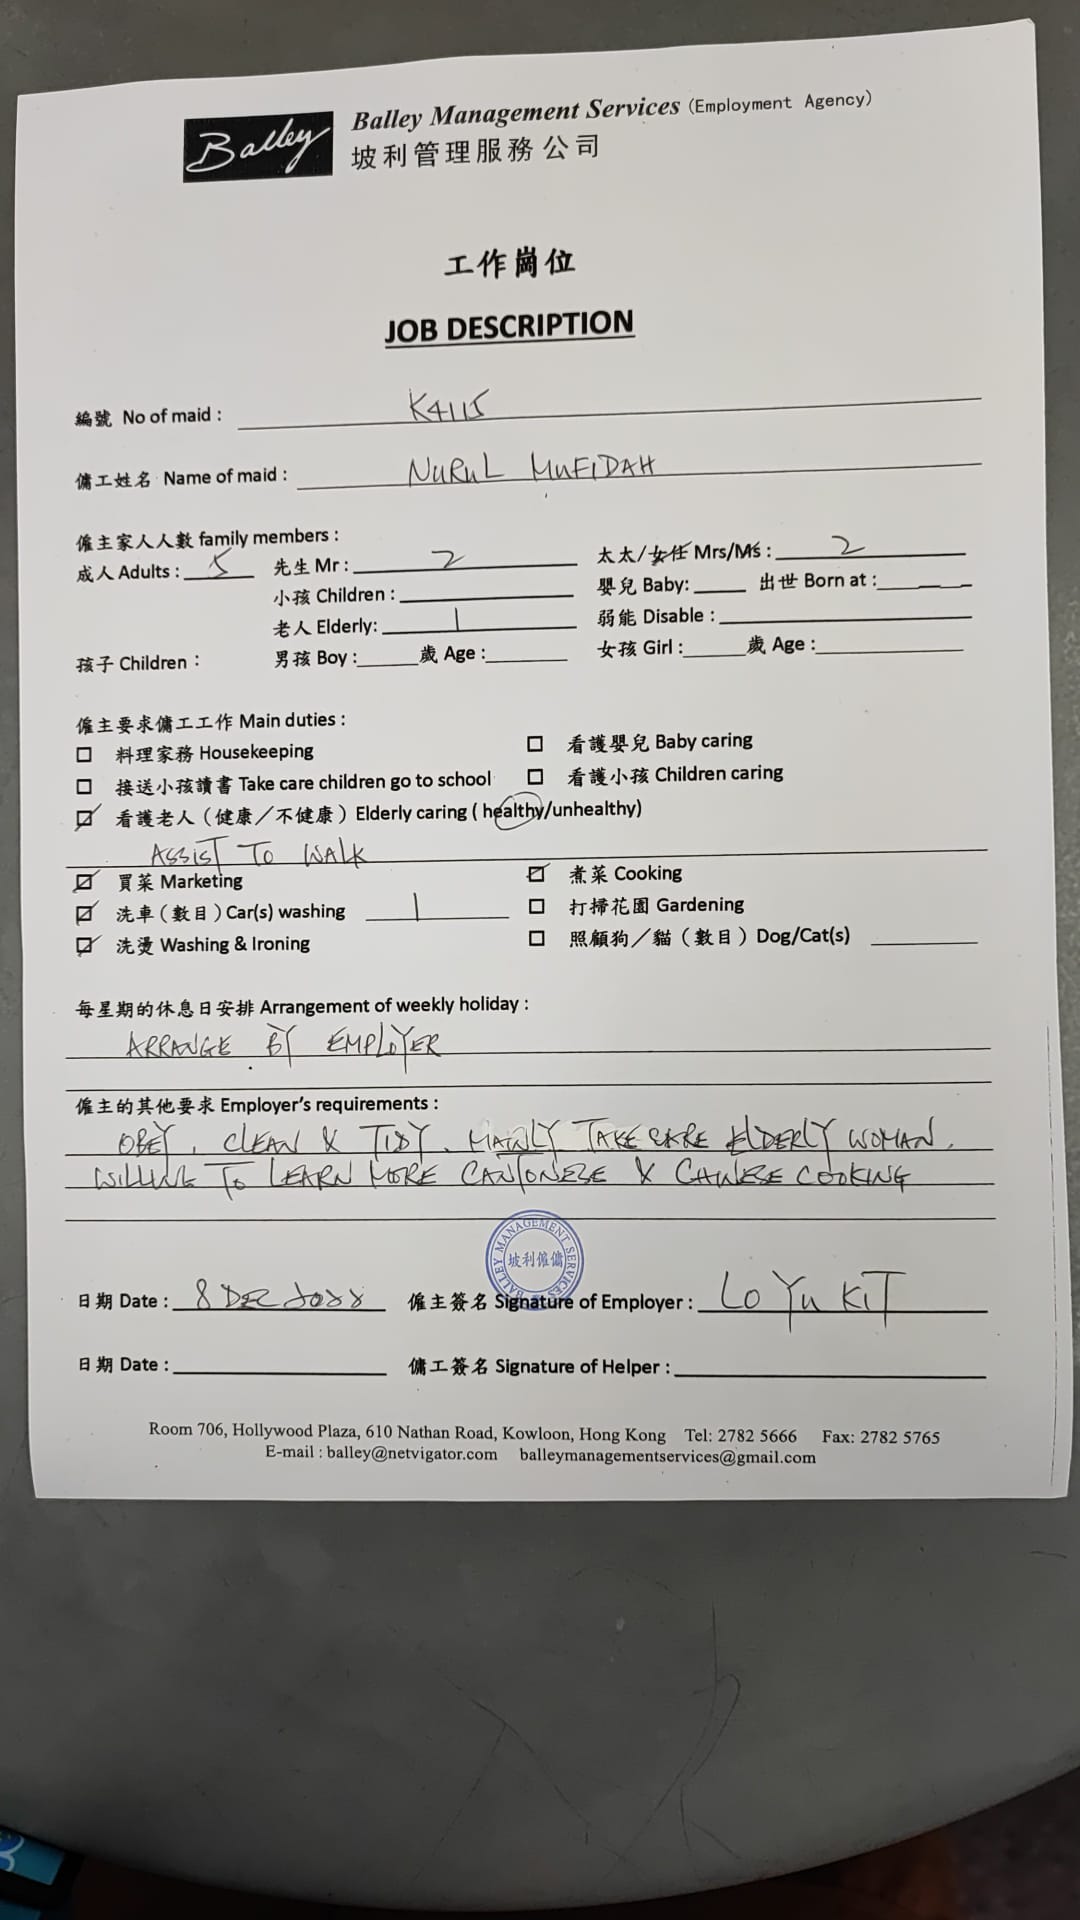 Balley
Balley Management Services (Employment Agency)
坡利管理服務公司
工作崗位
JOB DESCRIPTION
編號 No of maid : K4115
傭工姓名 Name of maid : NURUL MUFIDAH
僱主家人人數 family members :
成人 Adults : 5 先生 Mr : 2 太太/女仕 Mrs/Ms : 2
小孩 Children : 嬰兒 Baby: 出世 Born at :
老人 Elderly: 1 弱能 Disable :
孩子 Children : 男孩 Boy : 歲 Age : 女孩 Girl : 歲 Age :
僱主要求傭工工作 Main duties :
料理家務 Housekeeping 看護嬰兒 Baby caring
接送小孩讀書 Take care children go to school 看護小孩 Children caring
看護老人（健康／不健康）Elderly caring ( healthy/unhealthy)
ASSIST TO WALK
買菜 Marketing 煮菜 Cooking
洗車（數目）Car(s) washing 1 打掃花園 Gardening
洗燙 Washing & Ironing 照顧狗／貓（數目）Dog/Cat(s)
每星期的休息日安排 Arrangement of weekly holiday :
ARRANGE BY EMPLOYER
僱主的其他要求 Employer's requirements :
OBEY, CLEAN & TIDY. MAINLY TAKE CARE ELDERLY WOMAN.
WILLING TO LEARN MORE CANTONESE & CHINESE COOKING
BALLEY MANAGEMENT SERVICES
坡利僱傭
日期 Date : 8 DEC 2022 僱主簽名 Signature of Employer : LO YU KIT
日期 Date : 傭工簽名 Signature of Helper :
Room 706, Hollywood Plaza, 610 Nathan Road, Kowloon, Hong Kong Tel: 2782 5666 Fax: 2782 5765
E-mail : balley@netvigator.com balleymanagementservices@gmail.com